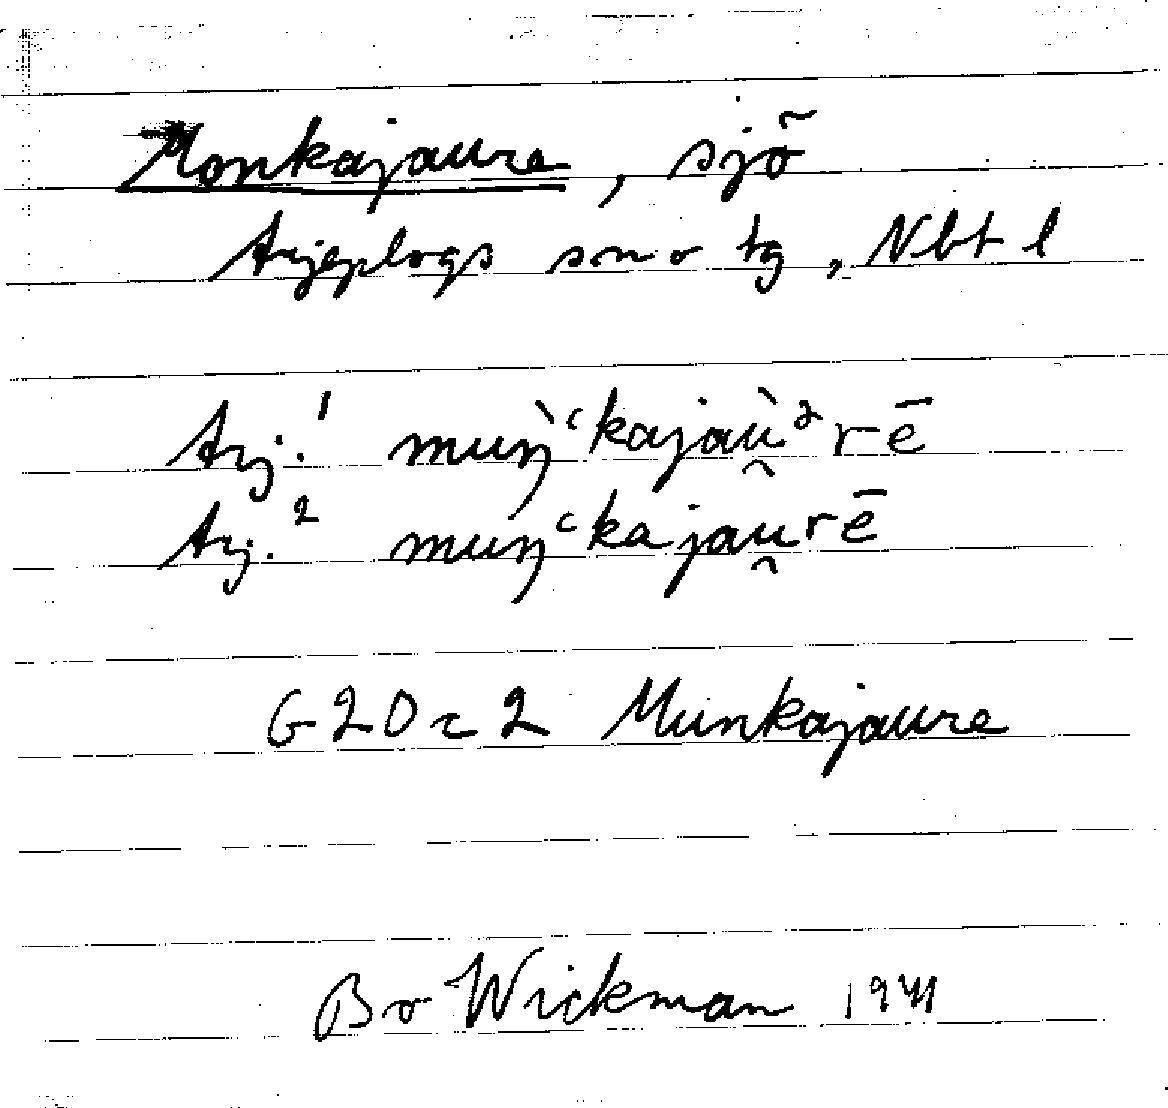 Monkajaure, sjö
Arjeplogs sn o tg, Nbt l
Arj.¹ muŋ̀ʿkajaù̯ᵊrē
Arj.² muŋʿkajau̯rē
G20 c 2 Munkajaure
Bo Wickman 1941